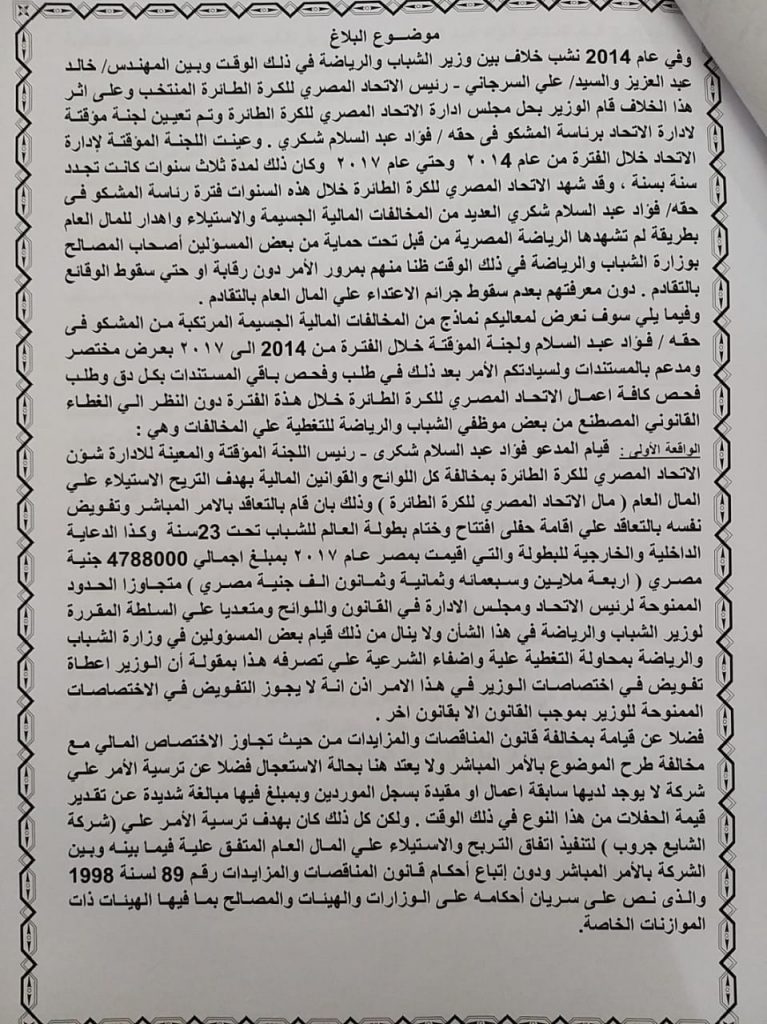 موضـــوع البلاغ
وفي عام 2014 نشب خلاف بين وزير الشباب والرياضة في ذلك الوقت وبين المهندس/ خالد
عبد العزيز والسيد/ علي السرجاني - رئيس الاتحاد المصري للكرة الطائرة المنتخب وعلى اثر
هذا الخلاف قام الوزير بحل مجلس ادارة الاتحاد المصري للكرة الطائرة وتم تعيين لجنة مؤقتة
لادارة الاتحاد برئاسة المشكو فى حقه / فؤاد عبد السلام شكري . وعينت اللجنة المؤقتة لإدارة
الاتحاد خلال الفترة من عام ٢٠1٤ وحتي عام ٢٠١٧ وكان ذلك لمدة ثلاث سنوات كانت تجدد
سنة بسنة ، وقد شهد الاتحاد المصري للكرة الطائرة خلال هذه السنوات فترة رئاسة المشكو فى
حقه/ فؤاد عبد السلام شكري العديد من المخالفات المالية الجسيمة والاستيلاء واهدار للمال العام
بطريقة لم تشهدها الرياضة المصرية من قبل تحت حماية من بعض المسؤلين أصحاب المصالح
بوزارة الشباب والرياضة في ذلك الوقت ظنا منهم بمرور الأمر دون رقابة او حتي سقوط الوقائع
بالتقادم . دون معرفتهم بعدم سقوط جرائم الاعتداء علي المال العام بالتقادم .
وفيما يلي سوف نعرض لمعاليكم نماذج من المخالفات المالية الجسيمة المرتكبة من المشكو فى
حقه / فؤاد عبد السلام ولجنة المؤقتة خلال الفترة من 2014 الى ٢٠١٧ بعرض مختصر
ومدعم بالمستندات ولسيادتكم الأمر بعد ذلك في طلب وفحص باقي المستندات بكل دق وطلب
فحص كافة اعمال الاتحاد المصري للكرة الطائرة خلال هذة الفترة دون النظر الي الغطاء
القانوني المصطنع من بعض موظفي الشباب والرياضة للتغطية علي المخالفات وهي :
الواقعة الأولى : قيام المدعو فؤاد عبد السلام شكرى - رئيس اللجنة المؤقتة والمعينة للادارة شؤن
الاتحاد المصري للكرة الطائرة بمخالفة كل اللوائح والقوانين المالية بهدف التربح الاستيلاء علي
المال العام ( مال الاتحاد المصري للكرة الطائرة ) وذلك بان قام بالتعاقد بالامر المباشر وتفويض
نفسه بالتعاقد علي اقامة حفلى افتتاح وختام بطولة العالم للشباب تحت 23سنة وكذا الدعاية
الداخلية والخارجية للبطولة والتي اقيمت بمصر عام ٢٠١٧ بمبلغ اجمالي 4788000 جنية
مصري ( اربعة ملايين وسبعمائه وثمانية وثمانون الف جنية مصري ) متجاوزا الحدود
الممنوحة لرئيس الاتحاد ومجلس الادارة في القانون واللوائح ومتعديا علي السلطة المقررة
لوزير الشباب والرياضة في هذا الشأن ولا ينال من ذلك قيام بعض المسؤولين في وزارة الشباب
والرياضة بمحاولة التغطية علية واضفاء الشرعية علي تصرفه هذا بمقولة أن الوزير اعطاة
تفويض في اختصاصات الوزير في هذا الامر اذن انة لا يجوز التفويض في الاختصاصات
الممنوحة للوزير بموجب القانون الا بقانون اخر .
فضلا عن قيامة بمخالفة قانون المناقصات والمزايدات من حيث تجاوز الاختصاص المالي مع
مخالفة طرح الموضوع بالأمر المباشر ولا يعتد هنا بحالة الاستعجال فضلا عن ترسية الأمر علي
شركة لا يوجد لديها سابقة اعمال او مقيدة بسجل الموردين وبمبلغ فيها مبالغة شديدة عن تقدير
قيمة الحفلات من هذا النوع في ذلك الوقت . ولكن كل ذلك كان بهدف ترسية الأمر علي (شركة
الشايع جروب ) لتنفيذ اتفاق التربح والاستيلاء علي المال العام المتفق علية فيما بينه وبين
الشركة بالأمر المباشر ودون إتباع أحكام قانون المناقصات والمزايدات رقم 89 لسنة 1998
والذى نص على سريان أحكامه على الوزارات والهيئات والمصالح بما فيها الهيئات ذات
الموازنات الخاصة.